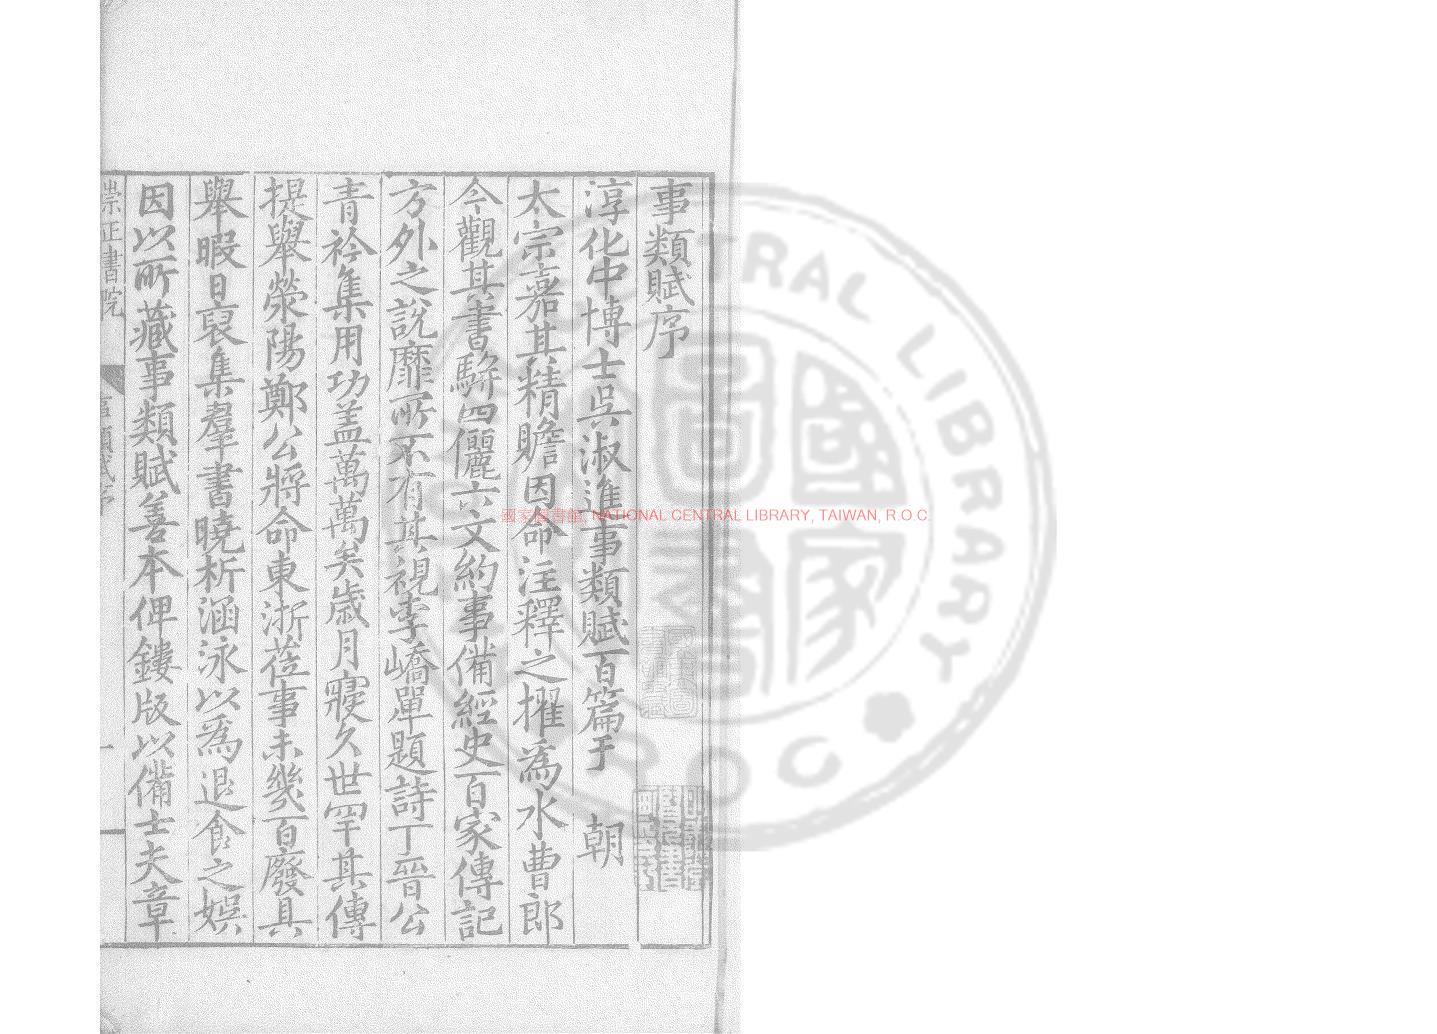 事類賦序
淳化中博士吳淑進事類賦百篇于 朝
太宗嘉其精贍因命注釋之擢為水曹郎
今觀其書駢四儷六文約事備經史百家傳記
方外之說靡所不有其視李嶠單題詩丁晉公
青衿集用功盖萬萬矣歳月寖久世罕其傳
提舉滎陽鄭公將命東浙莅事未幾百廢具
舉暇日裒集羣書曉析涵泳以為退食之娯
因以所藏事類賦善本俾鏤版以備士夫章
崇正書院
事類賦序
一
國家圖書館, NATIONAL CENTRAL LIBRARY, TAIWAN, R.O.C.
CENTRAL LIBRARY ROC